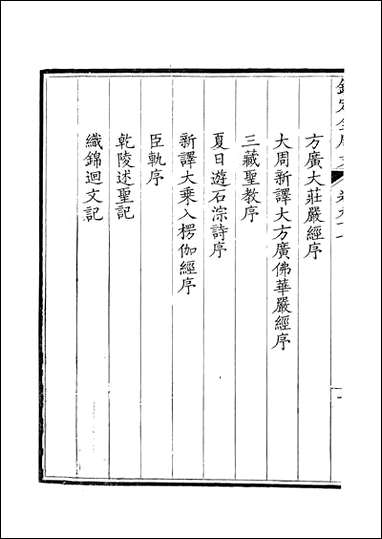 欽定全唐文 卷九十七
方廣大莊嚴經序
大周新譯大方廣佛華嚴經序
三藏聖教序
夏日遊石淙詩序
新譯大乗入楞伽經序
臣軌序
乾陵述聖記
織錦迴文記